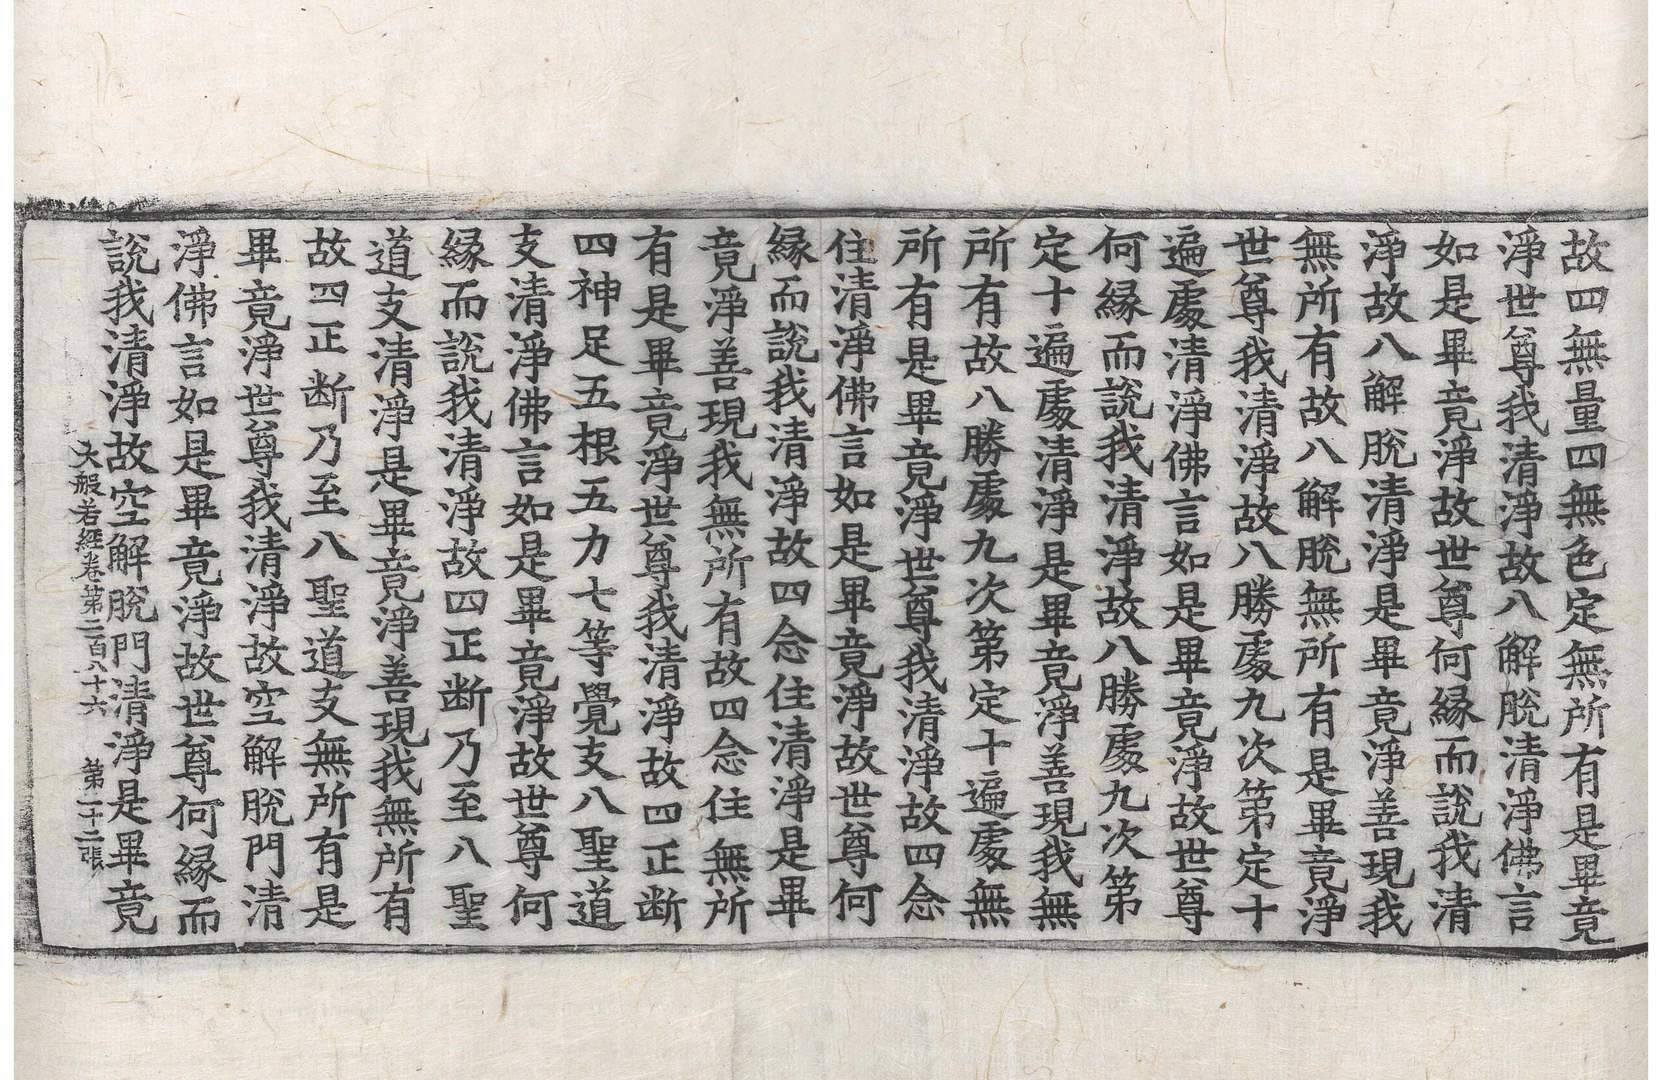 故四無量四無色定無所有是畢竟
淨世尊我清淨故八解脫清淨佛言
如是畢竟淨故世尊何緣而說我清
淨故八解脫清淨是畢竟淨善現我
無所有故八解脫無所有是畢竟淨
世尊我清淨故八勝處九次第定十
遍處清淨佛言如是畢竟淨故世尊
何緣而說我清淨故八勝處九次第
定十遍處清淨是畢竟淨善現我無
所有故八勝處九次第定十遍處無
所有是畢竟淨世尊我清淨故四念
住清淨佛言如是畢竟淨故世尊何
緣而說我清淨故四念住清淨是畢
竟淨善現我無所有故四念住無所
有是畢竟淨世尊我清淨故四正断
四神足五根五力七等覺支八聖道
支清淨佛言如是畢竟淨故世尊何
緣而說我清淨故四正断乃至八聖
道支清淨是畢竟淨善現我無所有
故四正断乃至八聖道支無所有是
畢竟淨世尊我清淨故空解脫門清
淨佛言如是畢竟淨故世尊何緣而
說我清淨故空解脫門清淨是畢竟
大般若經卷第二百八十六 第二十二張